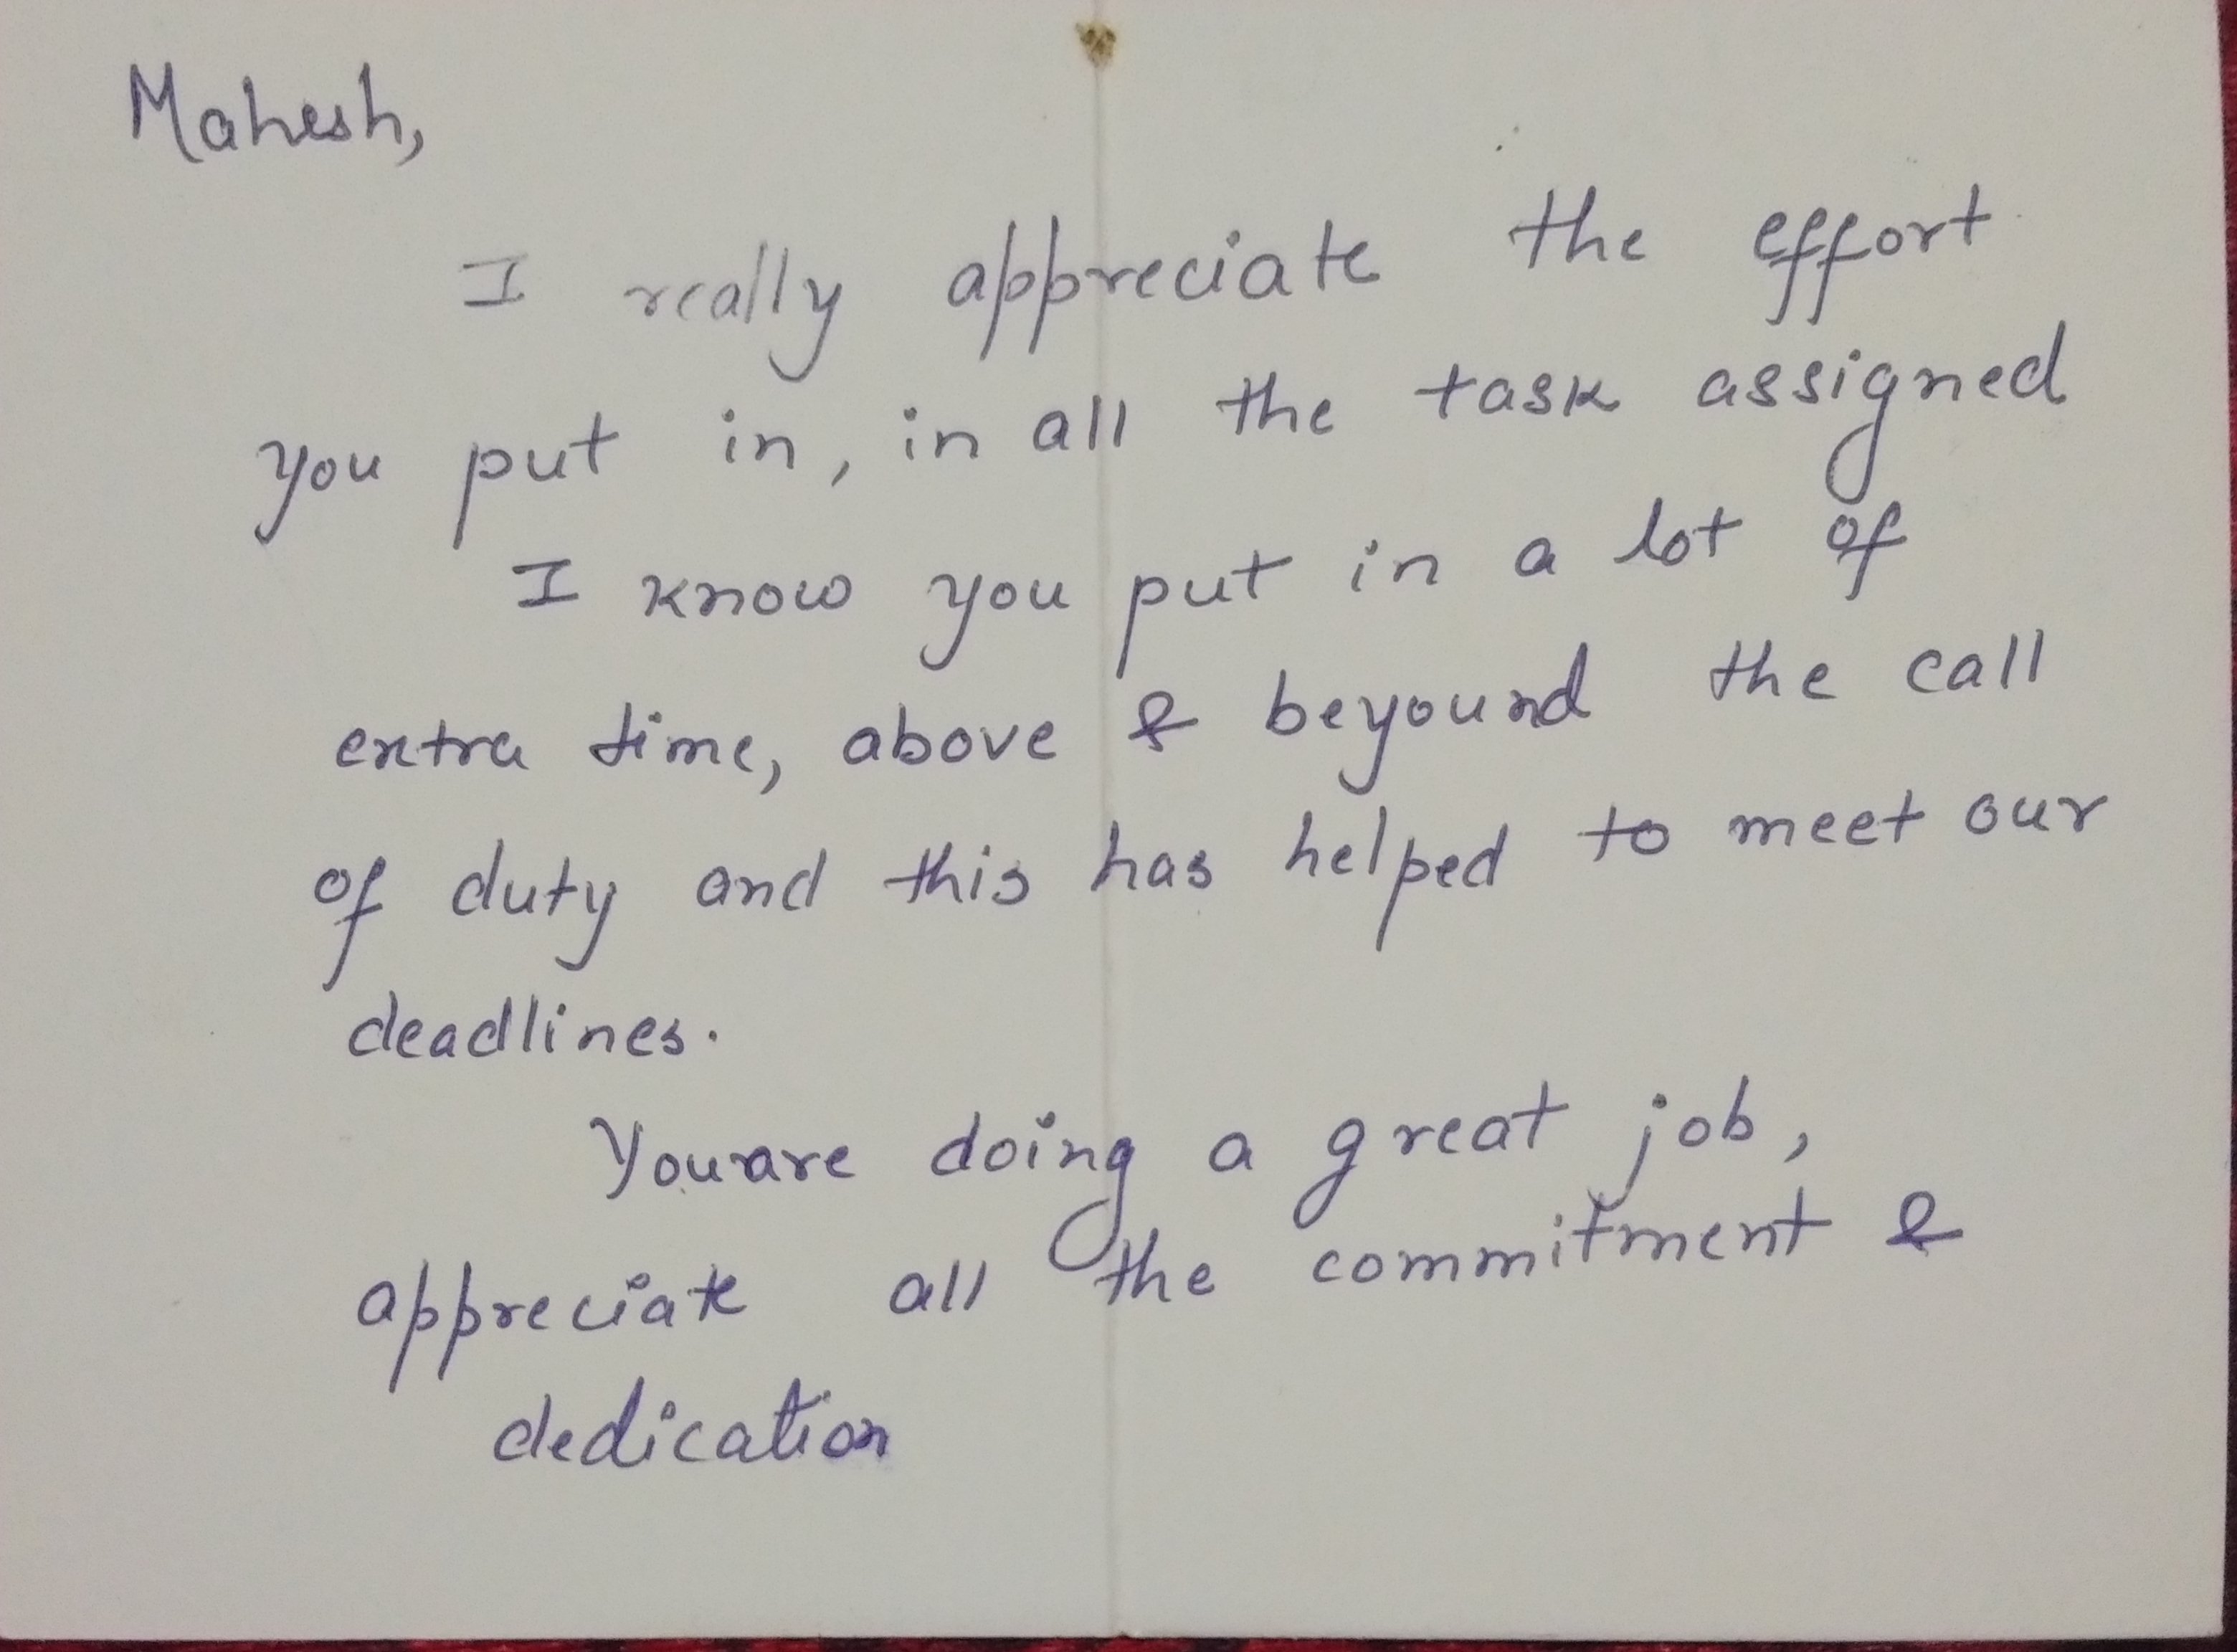 Mahesh,
I really appreciate the effort
you put in, in all the task assigned
I know you put in a lot of
extra time, above & beyound the call
of duty and this has helped to meet our
deadlines.
You are doing a great job,
appreciate all the commitment &
dedication